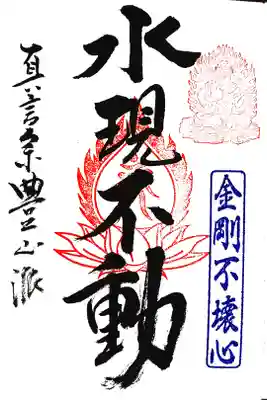 金剛不壊心
水現不動
真言宗豊山派